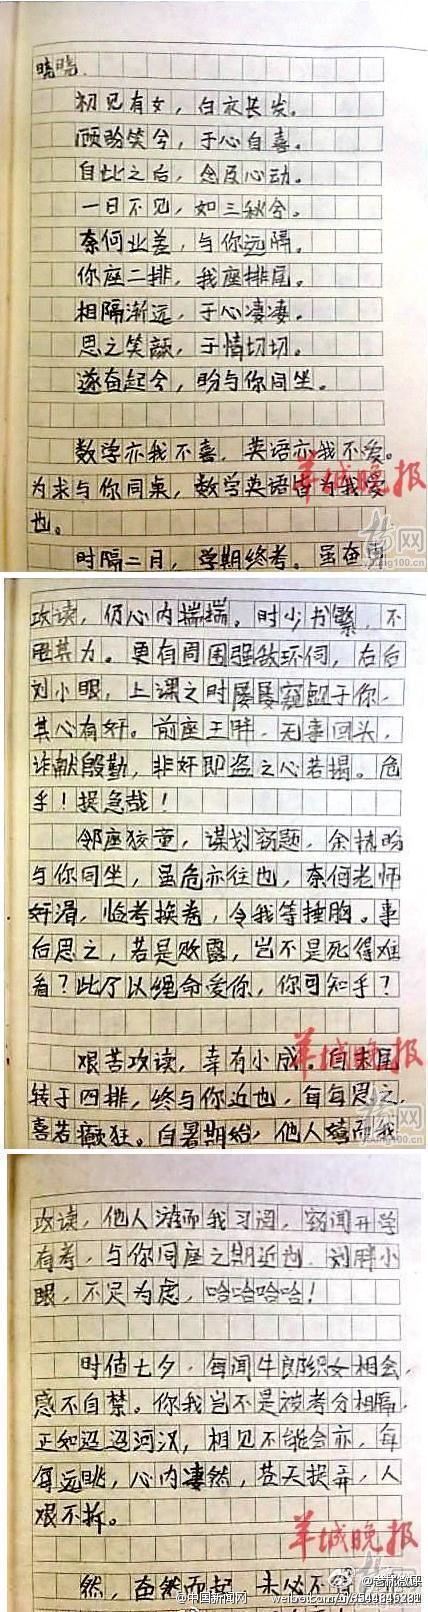 晓晓.
初见有女，白衣长发。
顾盼笑兮，于心自喜。
自此之后，念及心动。
一日不见，如三秋兮。
奈何业差，与你远隔。
你座二排，我座排尾。
相隔渐远，于心凄凄。
思之笑颜，于情切切。
遂奋起兮，盼与你同坐。
数学亦我不喜，英语亦我不爱。
为求与你同桌，数学英语皆为我爱
也。
羊城晚报
时隔二月，学期终考。虽奋
ycwb网
攻读，仍心内揣揣。时少书繁，不
胜其力。更有周围强敌环伺，右后
刘小眼，上课之时屡屡窥觑于你，
其心有奸。前座王胖，无事回头，
诈献殷勤，非奸即盗之心若揭。危
乎！捉急哉！
邻座狡童，谋划窃题，余执盼
与你同坐，虽危亦往也，奈何老师
奸滑，临考换卷，令我等捶胸。事
后思之，若是败露，岂不是死得难
看？此乃以绳命爱你，你可知乎？
羊城晚报
艰苦攻读，幸有小成。自末尾
转于四排，终与你近也，每每思之，
喜若癫狂。自暑期始，他人嬉而我
攻读，他人游而我习阅，窃闻开学
有考，与你同座之期近也，刘胖小
眼，不足为虑，哈哈哈哈！
时值七夕，每闻牛郎织女相会，
感不自禁。你我岂不是被考分相隔，
正如迢迢河汉，相见不能会亦，每
每远眺，心内凄然，苍天捉弄，人
艰不拆。
羊城晚报
然，奋然而起，未必不
@中国新闻网